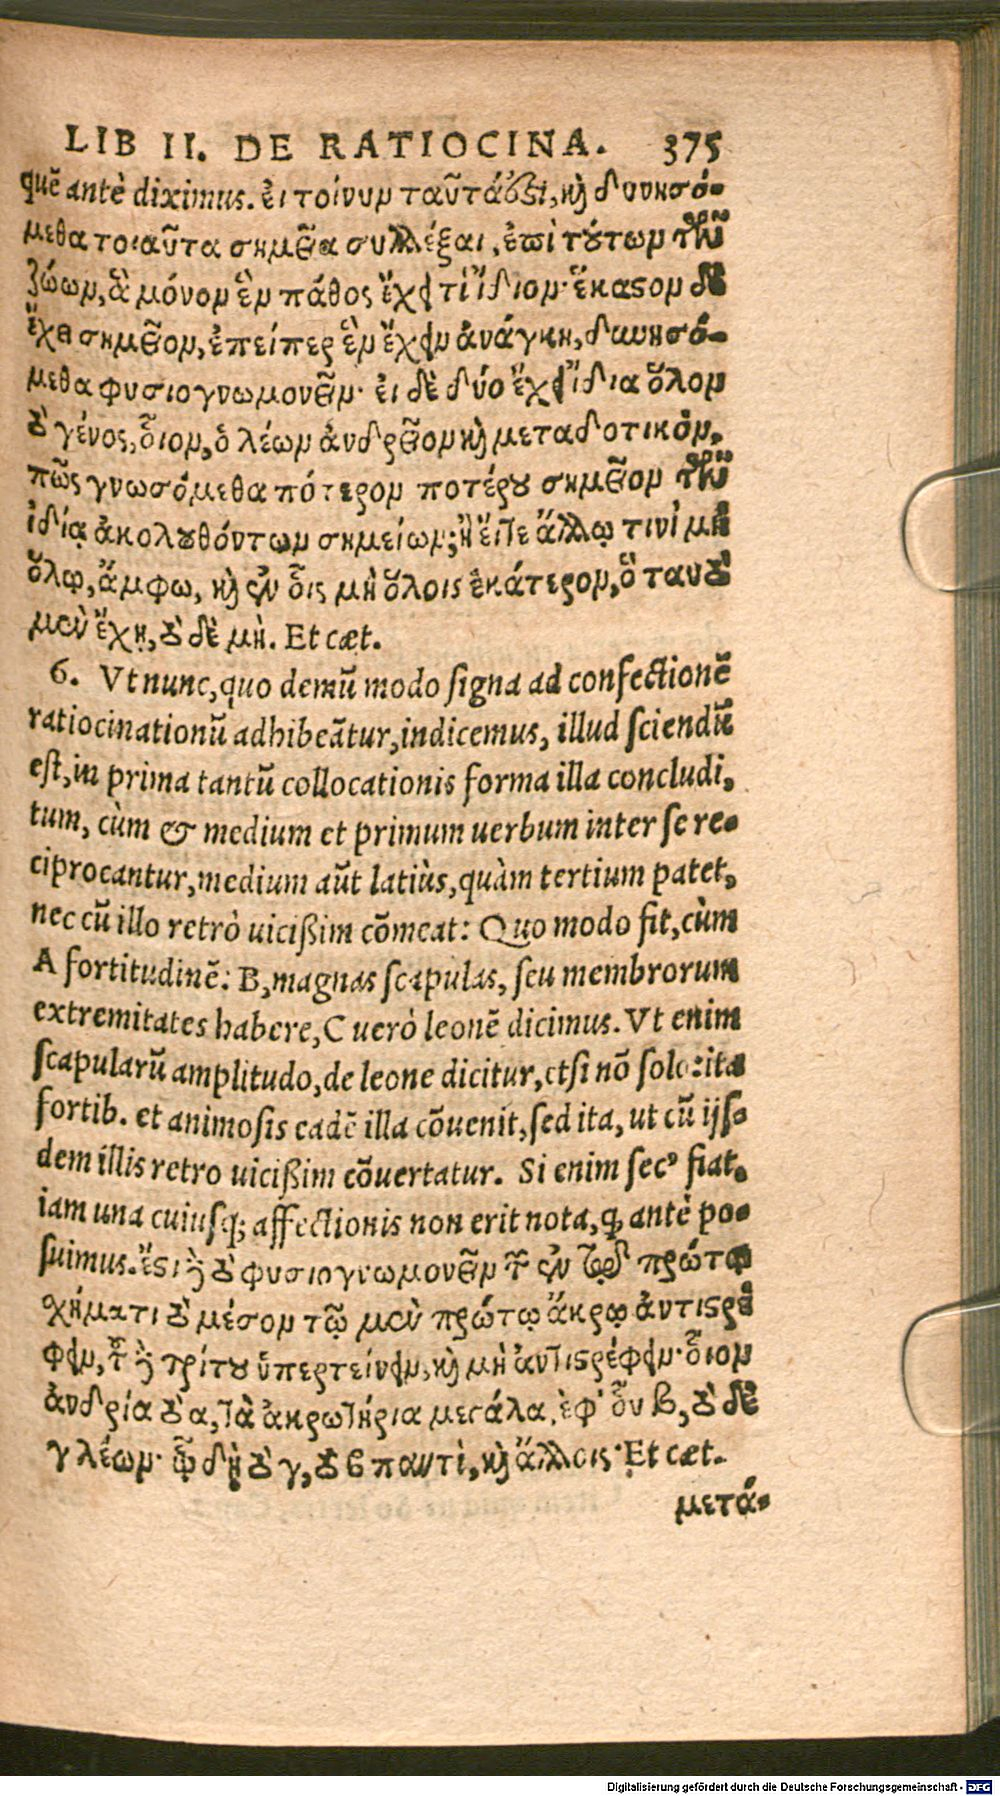 LIB II. DE RATIOCINA. 375
quē antè diximus. ἐι τοίνυν ταῦτά ὅζι, κ̀ δυνησό-
μεθα τοιαῦτα σημεῖα συλλέξαι, ἐπὶ τούτων τῶν
ζώων, ἃ μόνον ἓν πάθος ἔχει τὶ ἴδιον· ἕκαστον δὲ
ἔχει σημεῖον, ἐπείπερ ἓν ἔχειν ἀνάγκη, δυνησό-
μεθα φυσιογνωμονεῖν· ἐι δὲ δύο ἔχει ἴδια ὅλον
τὸ γένος, οἷον, ὁ λέων ἀνδρεῖον κ̀ μεταδοτικόν,
πῶς γνωσόμεθα πότερον ποτέρου σημεῖον τῶν
ἰδίᾳ ἀκολουθόντων σημείων; ἢ εἴπε ἄλλῳ τινὶ μὴ
ὅλῳ, ἄμφω, κ̀ ἐν οἷς μὴ ὅλοις ἑκάτερον, ὅταν τὸ
μὲν ἔχῃ, τὸ δὲ μὴ. Et cæt.
6. Vt nunc, quo demū modo signa ad confectionē
ratiocinationū adhibeātur, indicemus, illud sciendū
est, in prima tantū collocationis forma illa concludi,
tum, cùm & medium et primum uerbum inter se re-
ciprocantur, medium aūt latiùs, quàm tertium patet,
nec cū illo retrò uicißim cōmeat: Quo modo fit, cùm
A fortitudinē: B, magnas scapulas, seu membrorum
extremitates habere, C uerò leonē dicimus. Vt enim
scapularū amplitudo, de leone dicitur, etsi nō solo: ita
fortib. et animosis eadē illa cōuenit, sed ita, ut cū ijs-
dem illis retro uicißim cōuertatur. Si enim secꝰ fiat,
iam una cuiusq; affectionis non erit nota, q̨ antè po-
suimus. ἔστι δὲ τὸ φυσιογνωμονεῖν τῷ ἐν τῷ πρώτῳ
σχήματι τὸ μέσον τῷ μὲν πρώτῳ ἄκρῳ ἀντιστρέ
φειν, τοῦ δὲ τρίτου ὑπερτείνειν, κ̀ μὴ ἀντιστρέφειν· οἷον
ἀνδρία τὸ α, τὰ ἀκρωτήρια μεγάλα, ἐφ’ οὗ β, τὸ δὲ
γ λέων· ᾧ δὴ τὸ γ, τὸ β παντὶ, κ̀ ἄλλοις· Et cæt.
μετά-
Digitalisierung gefördert durch die Deutsche Forschungsgemeinschaft - DFG